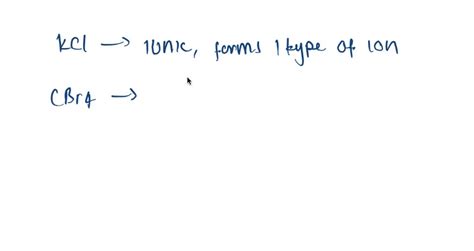 KCl → ionic, forms 1 type of ion
CBr4 →